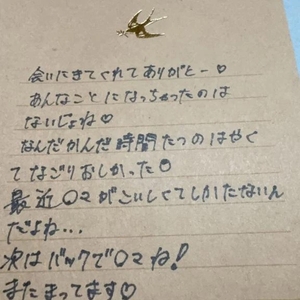 会いにきてくれてありがとー♡
あんなことになっちゃったのは
ないしょね♡
なんだかんだ時間たつのはやく
てなごりおしかった
最近〇マがこいしくてしかたないん
だよね…
次はバックで〇マね!
またまってます♡